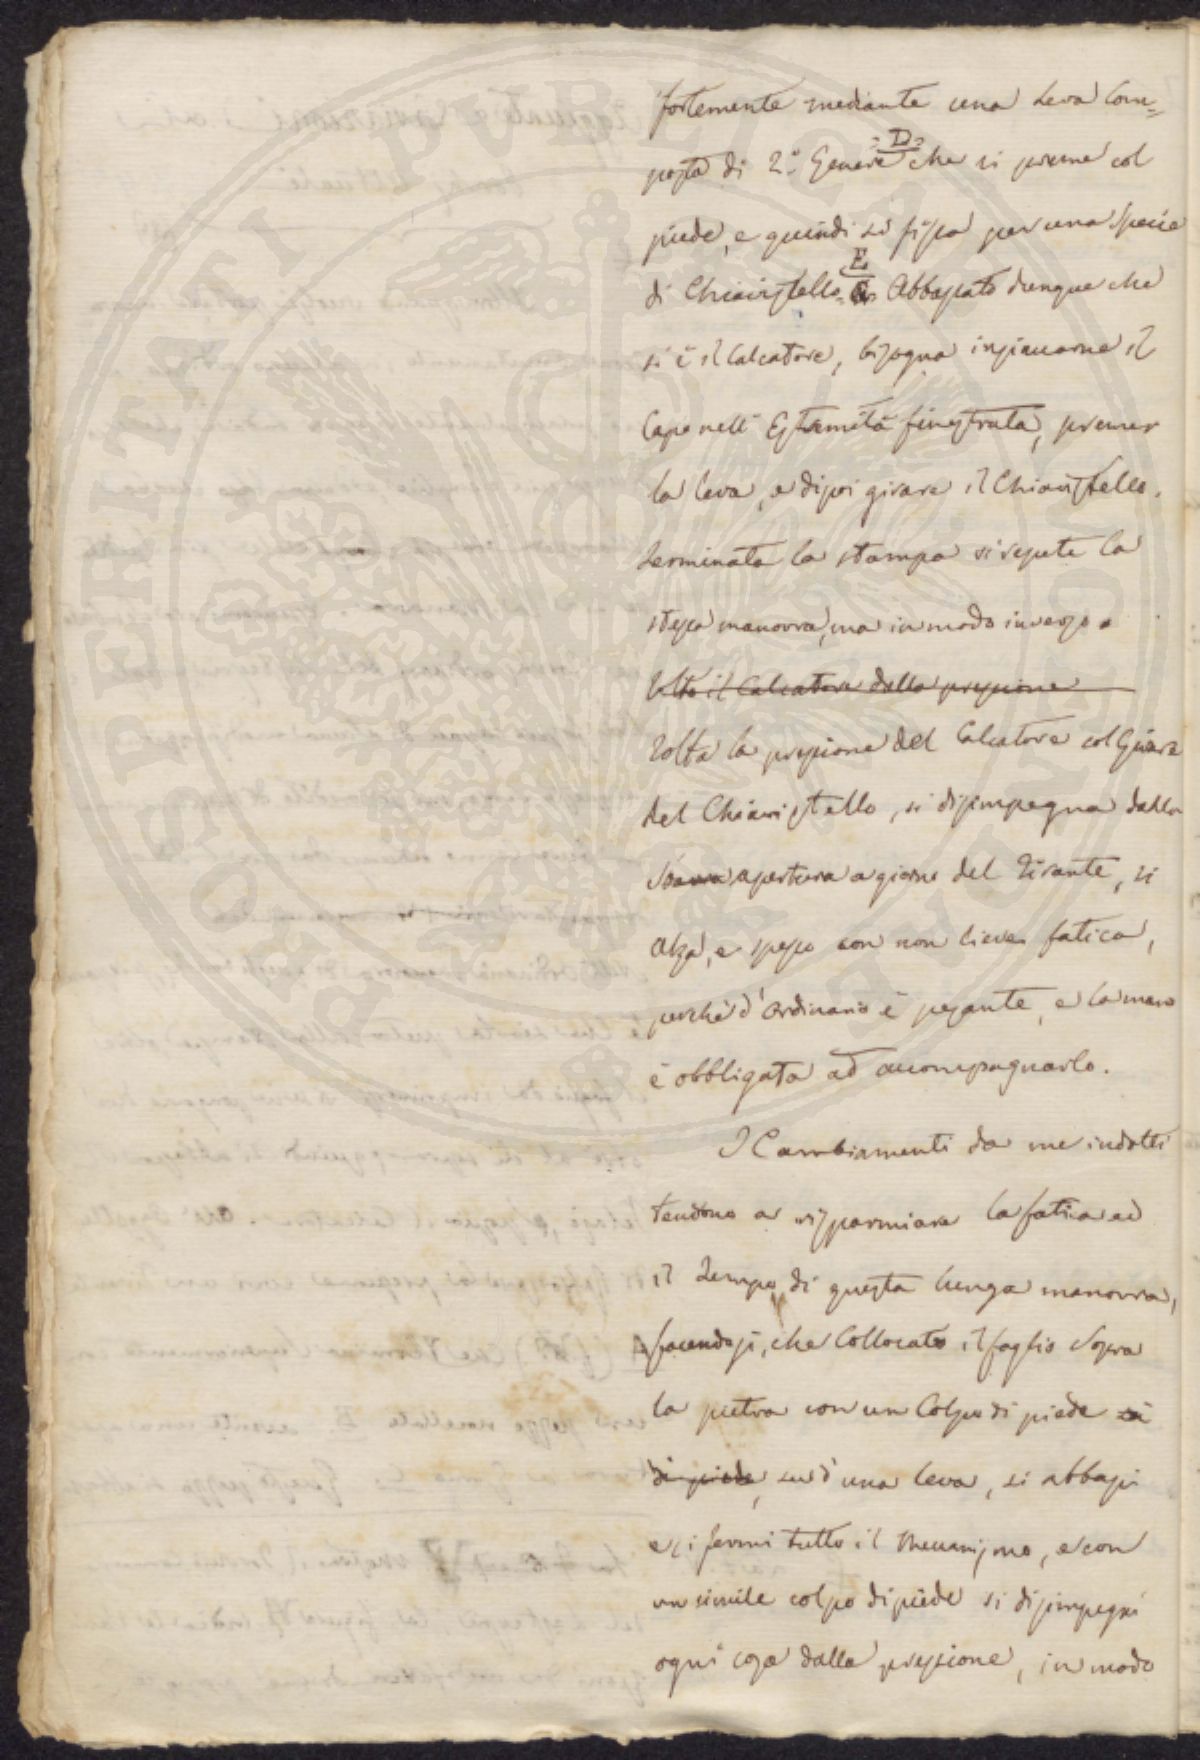 fortemente mediante una Leva Com=
posta di 2.° Genere =D= che si preme col
piede, e quindi si fissa per una specie
di Chiavistello =E= Abbassato dunque che
si è il Calcatore, bisogna insinuarne il
Capo nell' Estremità finestrata, premer
la leva, e dipoi girare il Chiavistello.
Terminata la stampa si repete la
stessa manovra, ma in modo inverso.
Tolto il Calcatore dalla pressione
Tolta la pressione del Calcatore col Girare
del Chiavistello, si disimpegna dalla
apertura a giorno del Tirante, si
Alza, e spesso con non lieve fatica,
perché d'Ordinario è pesante, e la mano
è obbligata ad accompagnarlo.
I Cambiamenti da me indotti
tendono a risparmiare la fatica ed
il tempo di questa lunga manovra,
facendosi, che Collocato il foglio Sopra
la pietra con un Colpo di piede
di piede, su d'una leva, si abbassi
e si fermi tutto il Meccanismo, e con
un simile colpo di piede si disimpegni
ogni cosa dalla pressione, in modo
PROSPERITATI PUBLICAE